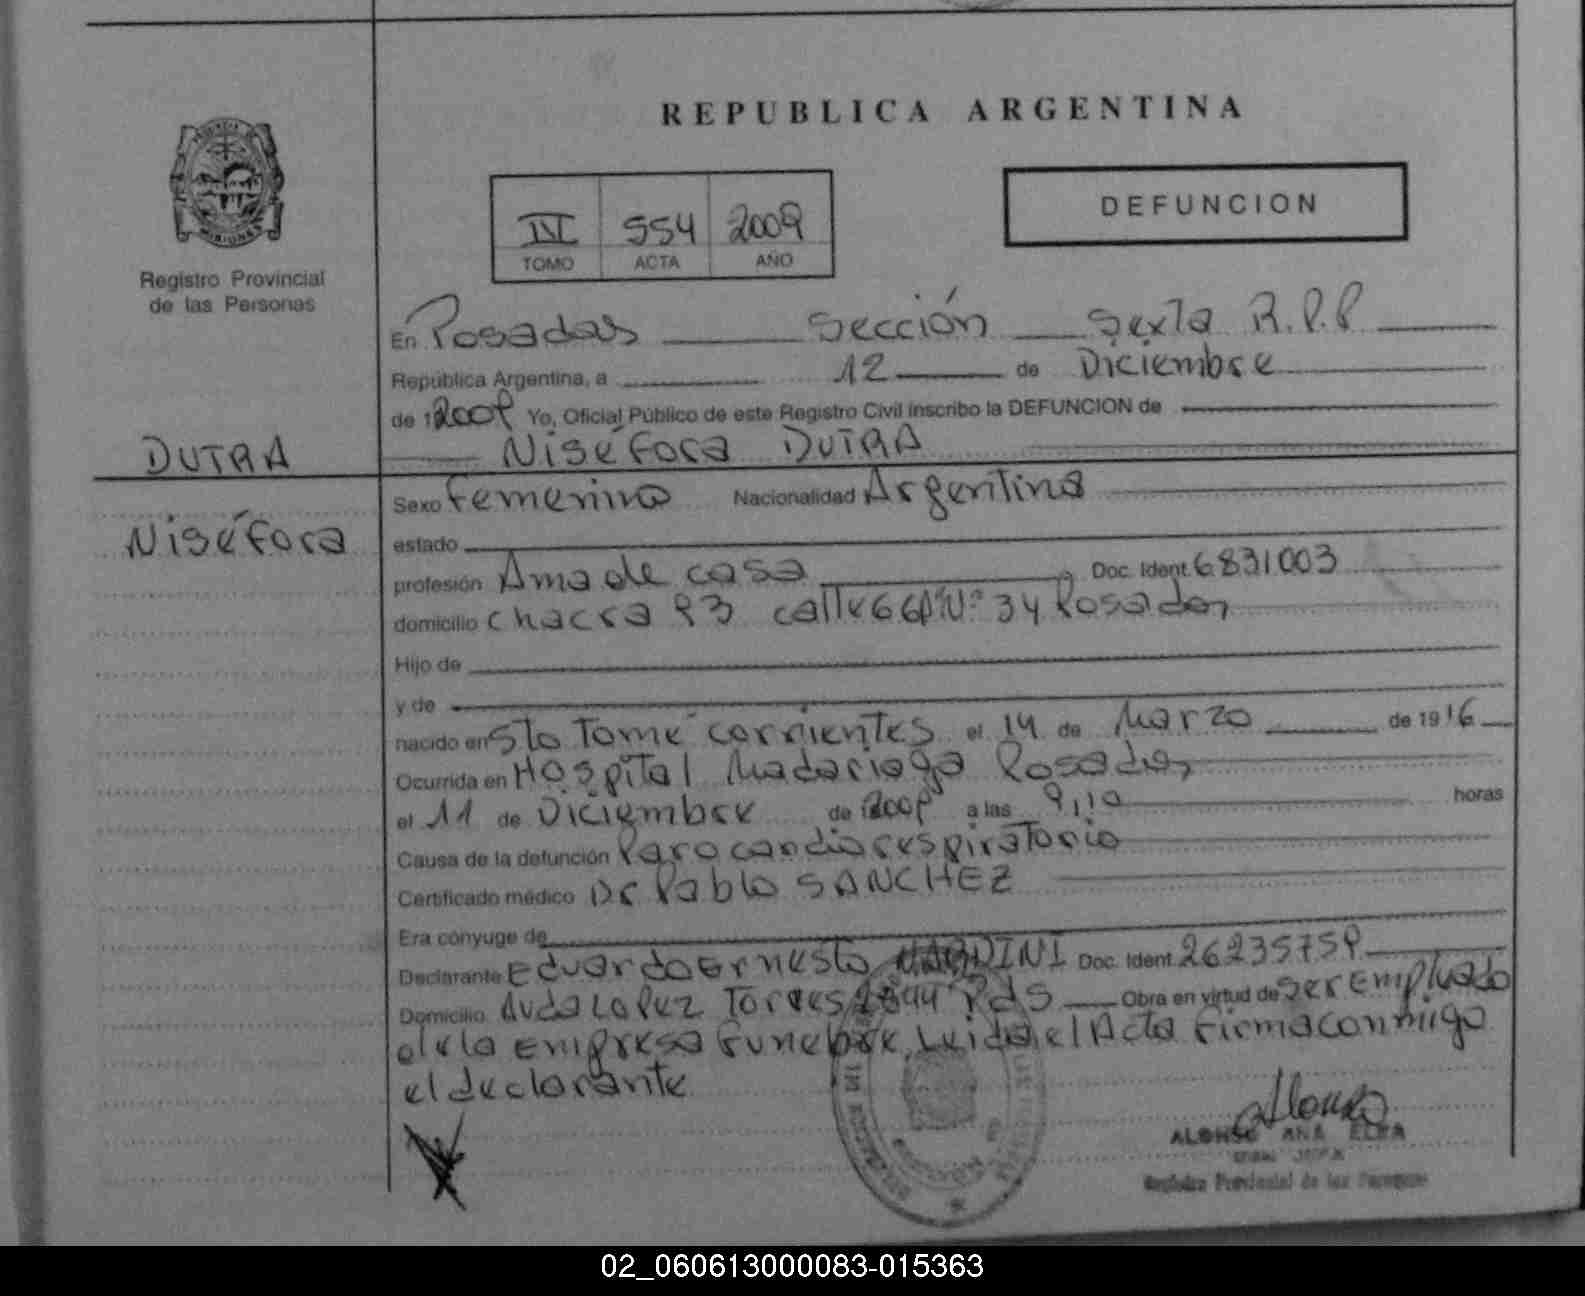 REPUBLICA ARGENTINA
IV 554 2009
TOMO ACTA AÑO
DEFUNCION
Registro Provincial
de las Personas
En Posadas Sección Sexta R.P.P
República Argentina, a 12 de Diciembre
de 12009 Yo, Oficial Público de este Registro Civil inscribo la DEFUNCION de
DUTRA
Niséfora DUTRA
Niséfora
Sexo Femenino Nacionalidad Argentina
estado
profesión Ama de casa Doc. Ident. 6831003
domicilio chacra 93 calle 66A Nº 34 Posadas
Hijo de
y de
nacido en Sto Tomé Corrientes el 14 de Marzo de 1916
Ocurrida en Hospital Madariaga Posadas
el 11 de Diciembre de 2009 a las 9,10 horas
Causa de la defunción Paro cardiorespiratorio
Certificado médico Dr Pablo SANCHEZ
Era cónyuge de
Declarante Eduardo Ernesto Doc. Ident. 26235759
Domicilio Avda Lopez Torres Pds Obra en virtud de ser empleado
de la Empresa Funebre. Leida el Acta Firma conmigo
el declarante
ALONSO ANA ELBA
Registro Provincial de las Personas
02_060613000083-015363